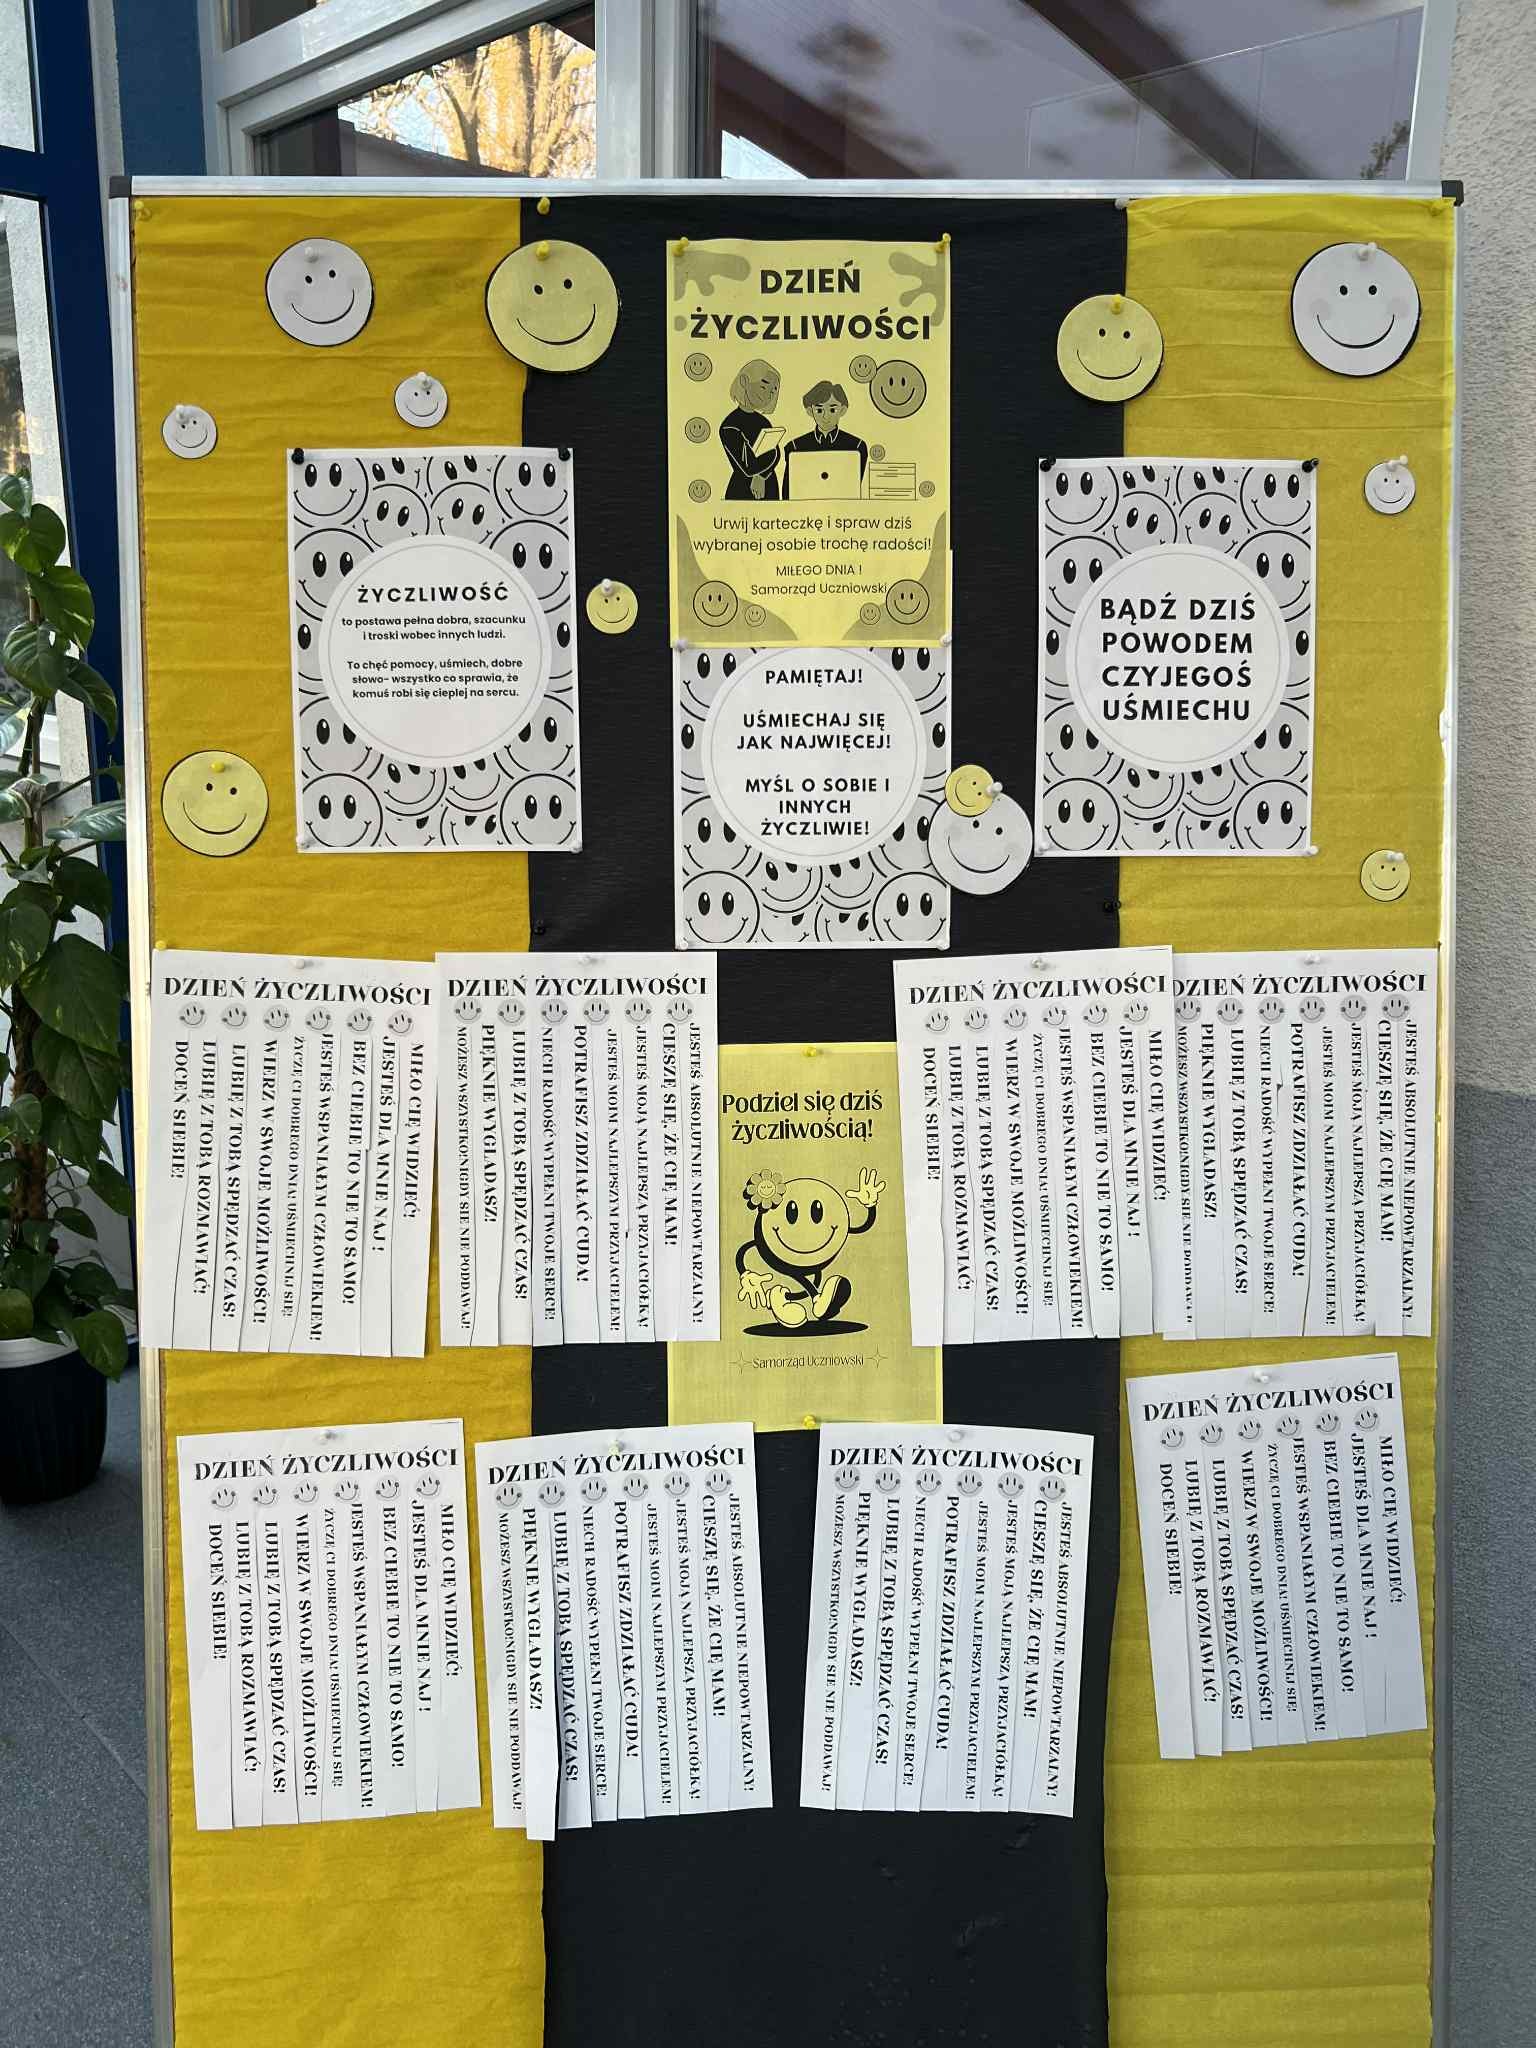 DZIEŃ
ŻYCZLIWOŚCI
Urwij karteczkę i spraw dziś
wybranej osobie trochę radości!
MIŁEGO DNIA !
Samorząd Uczniowski
ŻYCZLIWOŚĆ
to postawa pełna dobra, szacunku
i troski wobec innych ludzi.
To chęć pomocy, uśmiech, dobre
słowo- wszystko co sprawia, że
komuś robi się cieplej na sercu.
PAMIĘTAJ!
UŚMIECHAJ SIĘ
JAK NAJWIĘCEJ!
MYŚL O SOBIE I
INNYCH
ŻYCZLIWIE!
BĄDŹ DZIŚ
POWODEM
CZYJEGOŚ
UŚMIECHU
DZIEŃ ŻYCZLIWOŚCI
DOCEŃ SIEBIE!
LUBIĘ Z TOBĄ ROZMAWIAĆ!
LUBIĘ Z TOBĄ SPĘDZAĆ CZAS!
WIERZ W SWOJE MOŻLIWOŚCI!
ŻYCZĘ CI DOBREGO DNIA! UŚMIECHNIJ SIĘ!
JESTEŚ WSPANIAŁYM CZŁOWIEKIEM!
BEZ CIEBIE TO NIE TO SAMO!
JESTEŚ DLA MNIE NAJ !
MIŁO CIĘ WIDZIEĆ!
DZIEŃ ŻYCZLIWOŚCI
MOŻESZ WSZYSTKO!NIGDY SIE NIE PODDAWAJ!
PIĘKNIE WYGLĄDASZ!
LUBIĘ Z TOBĄ SPĘDZAĆ CZAS!
NIECH RADOŚĆ WYPEŁNI TWOJE SERCE!
POTRAFISZ ZDZIAŁAĆ CUDA!
JESTEŚ MOIM NAJLEPSZYM PRZYJACIELEM!
JESTEŚ MOJĄ NAJLEPSZĄ PRZYJACIÓŁKĄ!
CIESZĘ SIĘ, ŻE CIĘ MAM!
JESTEŚ ABSOLUTNIE NIEPOWTARZALNY!
Podziel się dziś
życzliwością!
Samorząd Uczniowski
DZIEŃ ŻYCZLIWOŚCI
DOCEŃ SIEBIE!
LUBIĘ Z TOBĄ ROZMAWIAĆ!
LUBIĘ Z TOBĄ SPĘDZAĆ CZAS!
WIERZ W SWOJE MOŻLIWOŚCI!
ŻYCZĘ CI DOBREGO DNIA! UŚMIECHNIJ SIĘ!
JESTEŚ WSPANIAŁYM CZŁOWIEKIEM!
BEZ CIEBIE TO NIE TO SAMO!
JESTEŚ DLA MNIE NAJ !
MIŁO CIĘ WIDZIEĆ!
DZIEŃ ŻYCZLIWOŚCI
MOŻESZ WSZYSTKO!NIGDY SIE NIE PODDAWAJ!
PIĘKNIE WYGLĄDASZ!
LUBIĘ Z TOBĄ SPĘDZAĆ CZAS!
NIECH RADOŚĆ WYPEŁNI TWOJE SERCE!
POTRAFISZ ZDZIAŁAĆ CUDA!
JESTEŚ MOIM NAJLEPSZYM PRZYJACIELEM!
JESTEŚ MOJĄ NAJLEPSZĄ PRZYJACIÓŁKĄ!
CIESZĘ SIĘ, ŻE CIĘ MAM!
JESTEŚ ABSOLUTNIE NIEPOWTARZALNY!
DZIEŃ ŻYCZLIWOŚCI
DOCEŃ SIEBIE!
LUBIĘ Z TOBĄ ROZMAWIAĆ!
LUBIĘ Z TOBĄ SPĘDZAĆ CZAS!
WIERZ W SWOJE MOŻLIWOŚCI!
ŻYCZĘ CI DOBREGO DNIA! UŚMIECHNIJ SIĘ!
JESTEŚ WSPANIAŁYM CZŁOWIEKIEM!
BEZ CIEBIE TO NIE TO SAMO!
JESTEŚ DLA MNIE NAJ !
MIŁO CIĘ WIDZIEĆ!
DZIEŃ ŻYCZLIWOŚCI
MOŻESZ WSZYSTKO!NIGDY SIE NIE PODDAWAJ!
PIĘKNIE WYGLĄDASZ!
LUBIĘ Z TOBĄ SPĘDZAĆ CZAS!
NIECH RADOŚĆ WYPEŁNI TWOJE SERCE!
POTRAFISZ ZDZIAŁAĆ CUDA!
JESTEŚ MOIM NAJLEPSZYM PRZYJACIELEM!
JESTEŚ MOJĄ NAJLEPSZĄ PRZYJACIÓŁKĄ!
CIESZĘ SIĘ, ŻE CIĘ MAM!
JESTEŚ ABSOLUTNIE NIEPOWTARZALNY!
DZIEŃ ŻYCZLIWOŚCI
MOŻESZ WSZYSTKO!NIGDY SIE NIE PODDAWAJ!
PIĘKNIE WYGLĄDASZ!
LUBIĘ Z TOBĄ SPĘDZAĆ CZAS!
NIECH RADOŚĆ WYPEŁNI TWOJE SERCE!
POTRAFISZ ZDZIAŁAĆ CUDA!
JESTEŚ MOIM NAJLEPSZYM PRZYJACIELEM!
JESTEŚ MOJĄ NAJLEPSZĄ PRZYJACIÓŁKĄ!
CIESZĘ SIĘ, ŻE CIĘ MAM!
JESTEŚ ABSOLUTNIE NIEPOWTARZALNY!
DZIEŃ ŻYCZLIWOŚCI
DOCEŃ SIEBIE!
LUBIĘ Z TOBĄ ROZMAWIAĆ!
LUBIĘ Z TOBĄ SPĘDZAĆ CZAS!
WIERZ W SWOJE MOŻLIWOŚCI!
ŻYCZĘ CI DOBREGO DNIA! UŚMIECHNIJ SIĘ!
JESTEŚ WSPANIAŁYM CZŁOWIEKIEM!
BEZ CIEBIE TO NIE TO SAMO!
JESTEŚ DLA MNIE NAJ !
MIŁO CIĘ WIDZIEĆ!